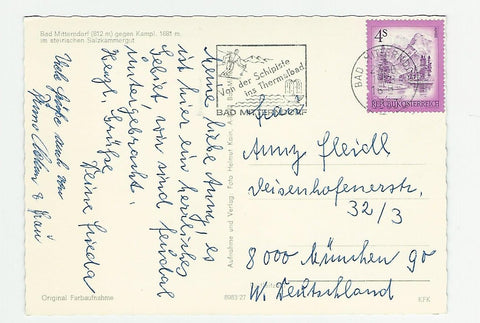 Bad Mitterndorf (812 m) gegen Kampl, 1681 m,
im steirischen Salzkammergut
Meine liebe Anny, es
ist hier ein herrliches
Gebiet, wir sind feudal
untergebracht.
Herzl. Grüße
Deine Frieda
Viele Grüße auch von
& Frau
Original Farbaufnahme
8983/27
Aufnahme und Verlag: Foto Helmut
Von der Schipiste
ins Thermalbad
BAD MITTERNDORF
4S
REPUBLIK ÖSTERREICH
BAD MITTERNDORF
Anny Fleidl
Deisenhofenerstr,
32/3
8000 München 90
W. Deutschland
KFK